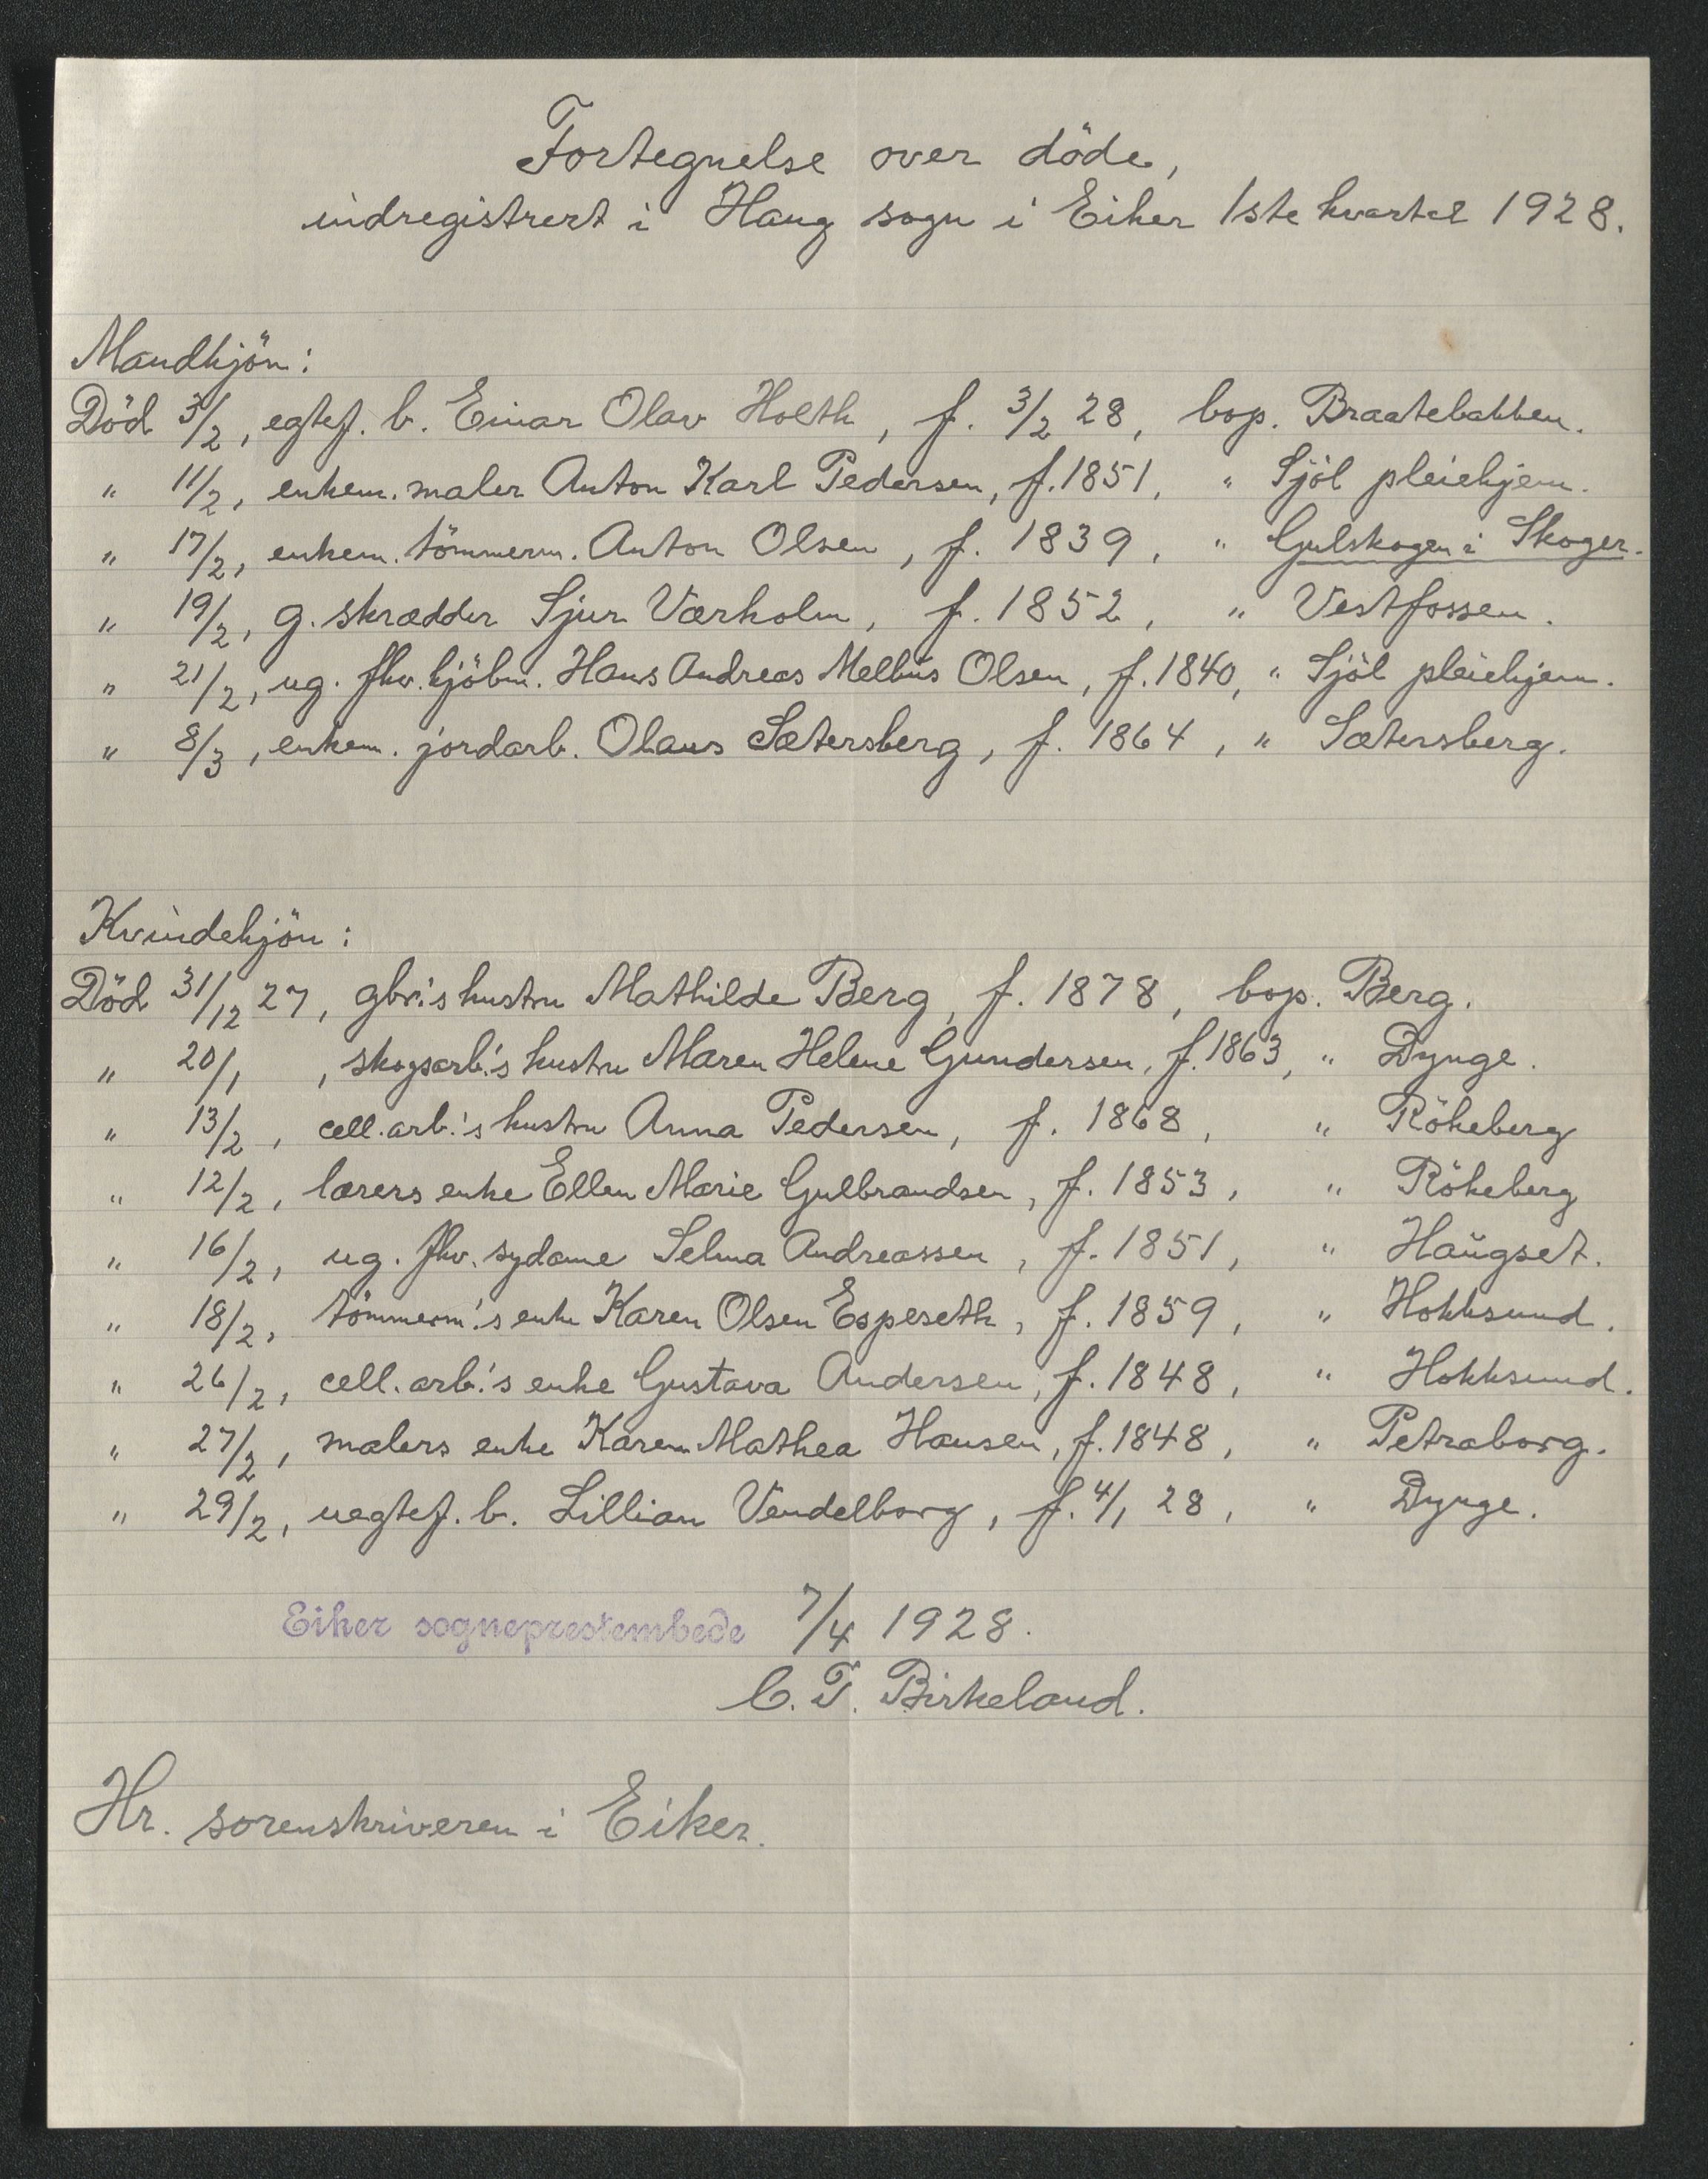 Fortegnelse over döde,
indregistrert i Haug sogn i Eiker 1ste kvartal 1928.
Mandkjön:
Död 3/2, egtef. b. Einar Olav Holth, f. 3/2 28, bop. Braatebakken.
" 11/2, enkem. maler Anton Karl Pedersen, f. 1851, " Sjöl pleiehjem.
" 17/2, enkem. tömmerm. Anton Olsen, f. 1839, " Gulskogen i Skoger.
" 19/2, g. skrædder Sjur Værholm, f. 1852, " Vestfossen.
" 21/2, ug. fhv. kjöbm. Hans Andreas Melbüs Olsen, f. 1840, " Sjöl pleiehjem.
" 8/3, enkem. jordarb. Olaus Sætersberg, f. 1864, " Sætersberg.
Kvindekjön:
Död 31/12 27, gbr.'s hustru Mathilde Berg, f. 1878, bop. Berg.
" 20/1, skogsarb.'s hustru Maren Helene Gundersen, f. 1863, " Dynge.
" 13/2, cell. arb.'s hustru Anna Pedersen, f. 1868, " Rökeberg
" 12/2, lærers enke Ellen Marie Gulbrandsen, f. 1853, " Rökeberg
" 16/2, ug. fhv. sydame Selma Andreassen, f. 1851, " Haügset.
" 18/2, tömmerm.'s enke Karen Olsen Espeseth, f. 1859, " Hokksund.
" 26/2, cell. arb.'s enke Gustava Andersen, f. 1848, " Hokksund.
" 27/2, malers enke Karen Mathea Hansen, f. 1848, " Petraborg.
" 29/2, uegtef. b. Lillian Vendelborg, f. 4/1 28, " Dynge.
Eiker sogneprestembede 7/4 1928.
C. T. Birkeland.
Hr. sorenskriveren i Eiker.